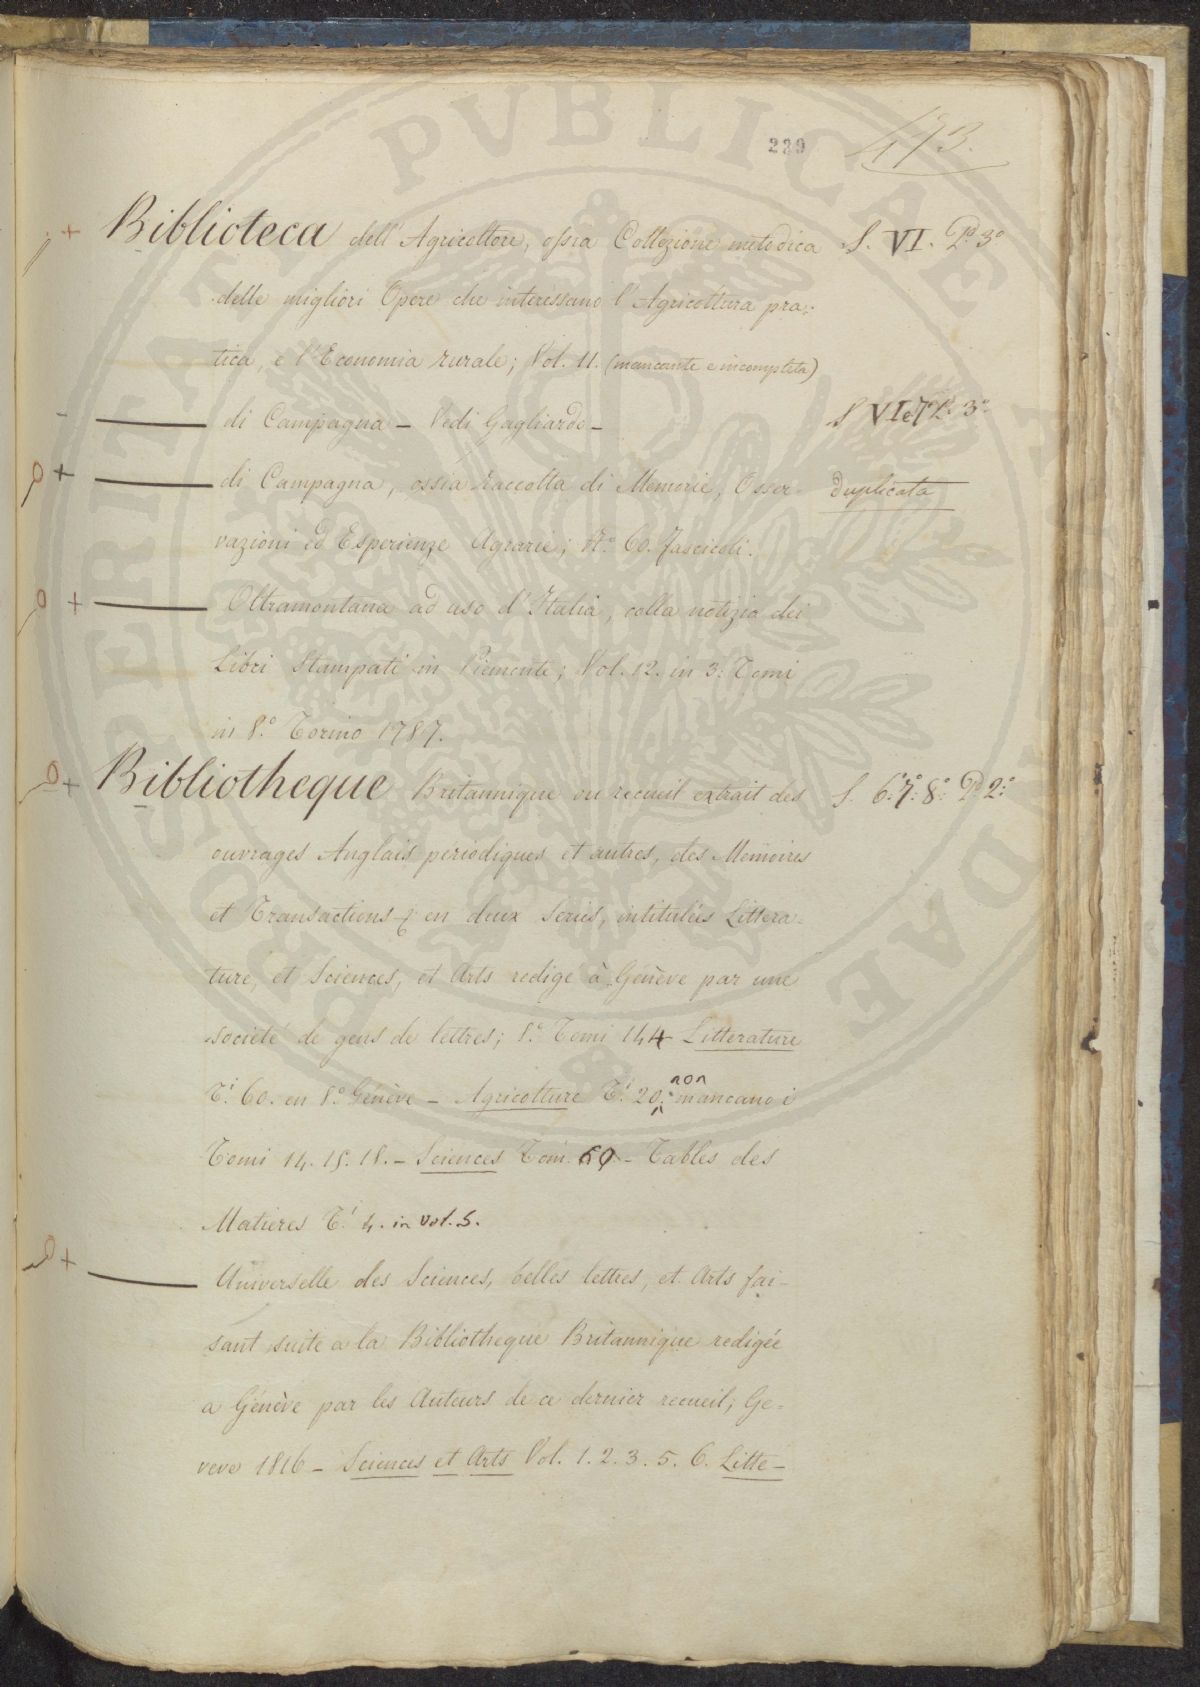 289
473.
Biblioteca dell'Agricoltore, ossia Collezione metodica S. VI. Pº 3º
delle migliori Opere che interessano l'Agricoltura pra:
tica, e l'Economia rurale; Vol. 11. (mancante e incompleta)
— di Campagna – Vedi Gagliardo – S VI e 7 Pº 3º
— di Campagna, ossia Raccolta di Memorie, Osser- duplicata
vazioni ed Esperienze Agrarie; Nº 60. Fascicoli.
— Oltramontana ad uso d'Italia, colla notizia dei
Libri Stampati in Piemonte; Vol. 12. in 3: Tomi
in 8º Torino 1787.
Bibliotheque Britannique ou recueil extrait des S. 6º 7º 8º Pº 2º
ouvrages Anglais periodiques et autres, des Memoires
et Transactions & en deux Series, intitulées Littera=
ture, et Sciences, et Arts redigé à Génève par une
societé de gens de lettres; 8º Tomi 144 Litterature
Ti 60. en 8º Génève – Agricolture Ti 20: non mancano i
Tomi 14. 15. 18. – Sciences Tom. 60 – Tables des
Matieres Ti 4. in vol. 5.
— Universelle des Sciences, belles lettres, et Arts fai-
sant suite a la Bibliotheque Britannique redigée
a Génève par les Auteurs de ce dernier recueil; Ge=
neve 1816 – Sciences et Arts Vol. 1. 2. 3. 5. 6. Litte-
PROSPERITATI PUBLICAE AUGENDAE